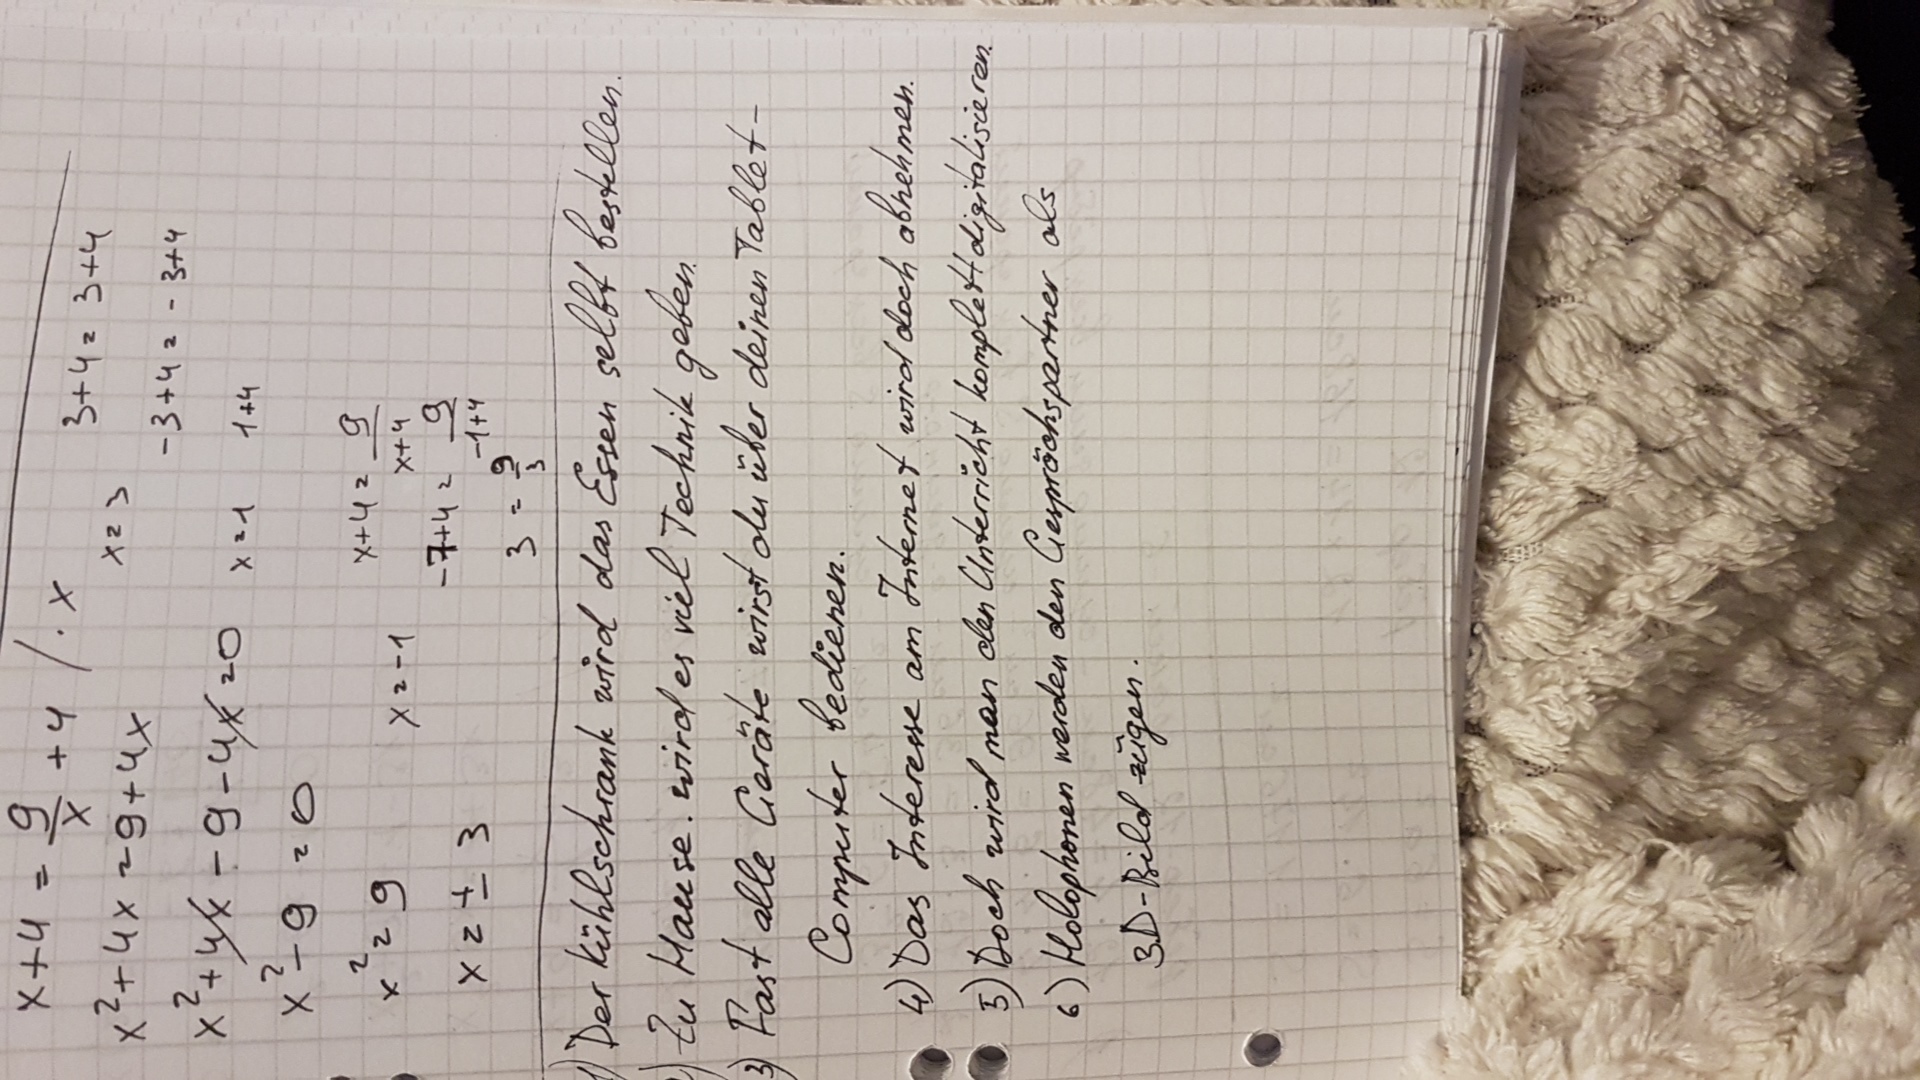 x+4 = 9/x + 4 / · x
x² + 4x = 9 + 4x
x = 3
3+4 = 3+4
x² + 4x - 9 - 4x = 0
-3+4 = -3+4
x² - 9 = 0
x = 1
1+4
x² = 9
x = -1
x+4 = 9/x+4
-7+4 = 9/-1+4
x = ± 3
3 = 9/3
1) Der Kühlschrank wird das Essen selbt bestellen.
2) Zu Hause wird es viel Technik geben.
3) Fast alle Geräte wirst du über deinen Tablet-
Computer bedienen.
4) Das Interesse am Internet wird doch abnehmen.
5) Doch wird man den Unterricht komplett digitalisieren.
6) Holophonen werden den Gesprächspartner als
3D-Bild zügen.